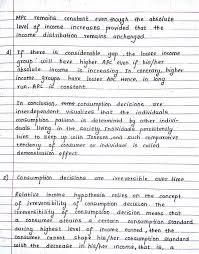 MPC remains constant even though the absolute
level of income increases provided that the
income distribution remains unchanged.
If there is considerable gap, the lower income
group will have higher APC even if his/her
absolute income is increasing. In contrary, higher
income groups have lower APC. Hence, in long
run, APC is constant.
In conclusion, some consumption decisions are
interdependent, visualizes that the individuals
consumption pattern is determined by other individ-
duals living in the society. Individuals persistently
tries to keep up with Joneses, and such comparative
tendency of consumer or individual is called
demonstration effect.
2) Consumption decisions are irreversible over time
Relative income hypothesis relies on the concept
of irreversibility of consumption decision. The
irreversibility of consumption decision means that
a consumer attains a certain consumption standard
during highest level of income earned, then the
consumer cannot his/her consumption standard
with the decrease in his/her income, that is, a